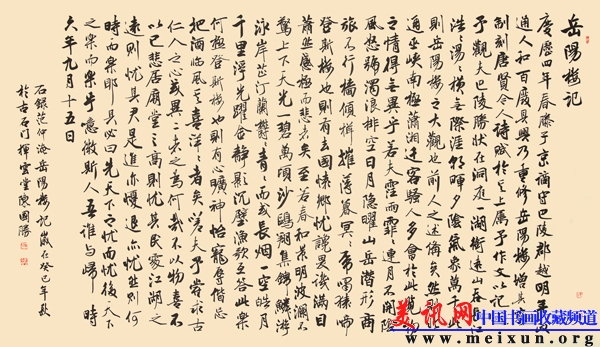 岳陽樓記
慶曆四年春滕子京謫守巴陵郡越明年政
通人和百廢具興乃重修岳陽樓增其舊
制刻唐賢今人詩賦於其上屬予作文以記
予觀夫巴陵勝狀在洞庭一湖銜遠山吞長江
浩浩湯湯橫無際涯朝暉夕陰氣象萬千此
則岳陽樓之大觀也前人之述備矣然則北
通巫峽南極瀟湘遷客騷人多會於此覽物
之情得無異乎若夫霪雨霏霏連月不開陰
風怒號濁浪排空日月隱曜山岳潛形商
旅不行檣傾楫摧薄暮冥冥虎嘯猿啼
登斯樓也則有去國懷鄉憂讒畏譏滿目
蕭然感極而悲者矣至若春和景明波瀾不
驚上下天光一碧萬頃沙鷗翔集錦鱗游
泳岸芷汀蘭郁郁青青而或長煙一空皓月
千里浮光躍金靜影沉璧漁歌互答此樂
何極登斯樓也則有心曠神怡寵辱偕忘
把酒臨風其喜洋洋者矣嗟夫予嘗求古
仁人之心或異二者之為何哉不以物喜不
以己悲居廟堂之高則憂其民處江湖之
遠則憂其君是進亦憂退亦憂然則何
時而樂耶其必曰先天下之憂而憂後天下
之樂而樂乎噫微斯人吾誰與歸 時
六年九月十五日
范仲淹岳陽樓記歲在癸巳年秋
於古石門揮雲堂陳國勝
美讯网 中国书画收藏频道
www.meixun.org